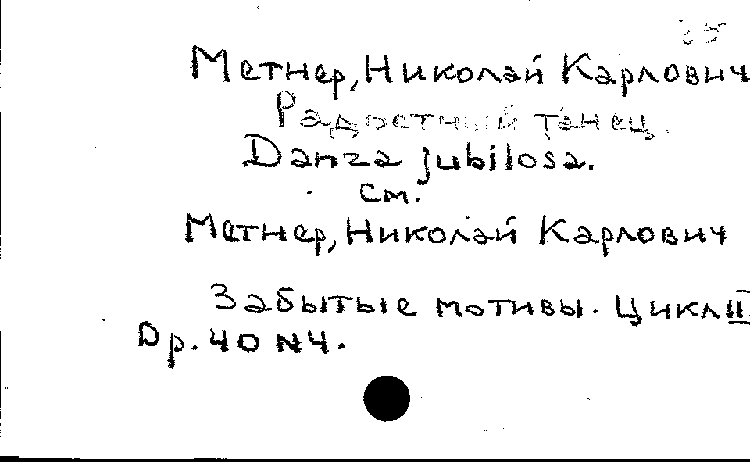 Метнер, Николай Карлович
Радостный танец.
Danza jubilosa.
см.
Метнер, Николай Карлович
Забытые мотивы. Цикл II
Op. 40 N4.